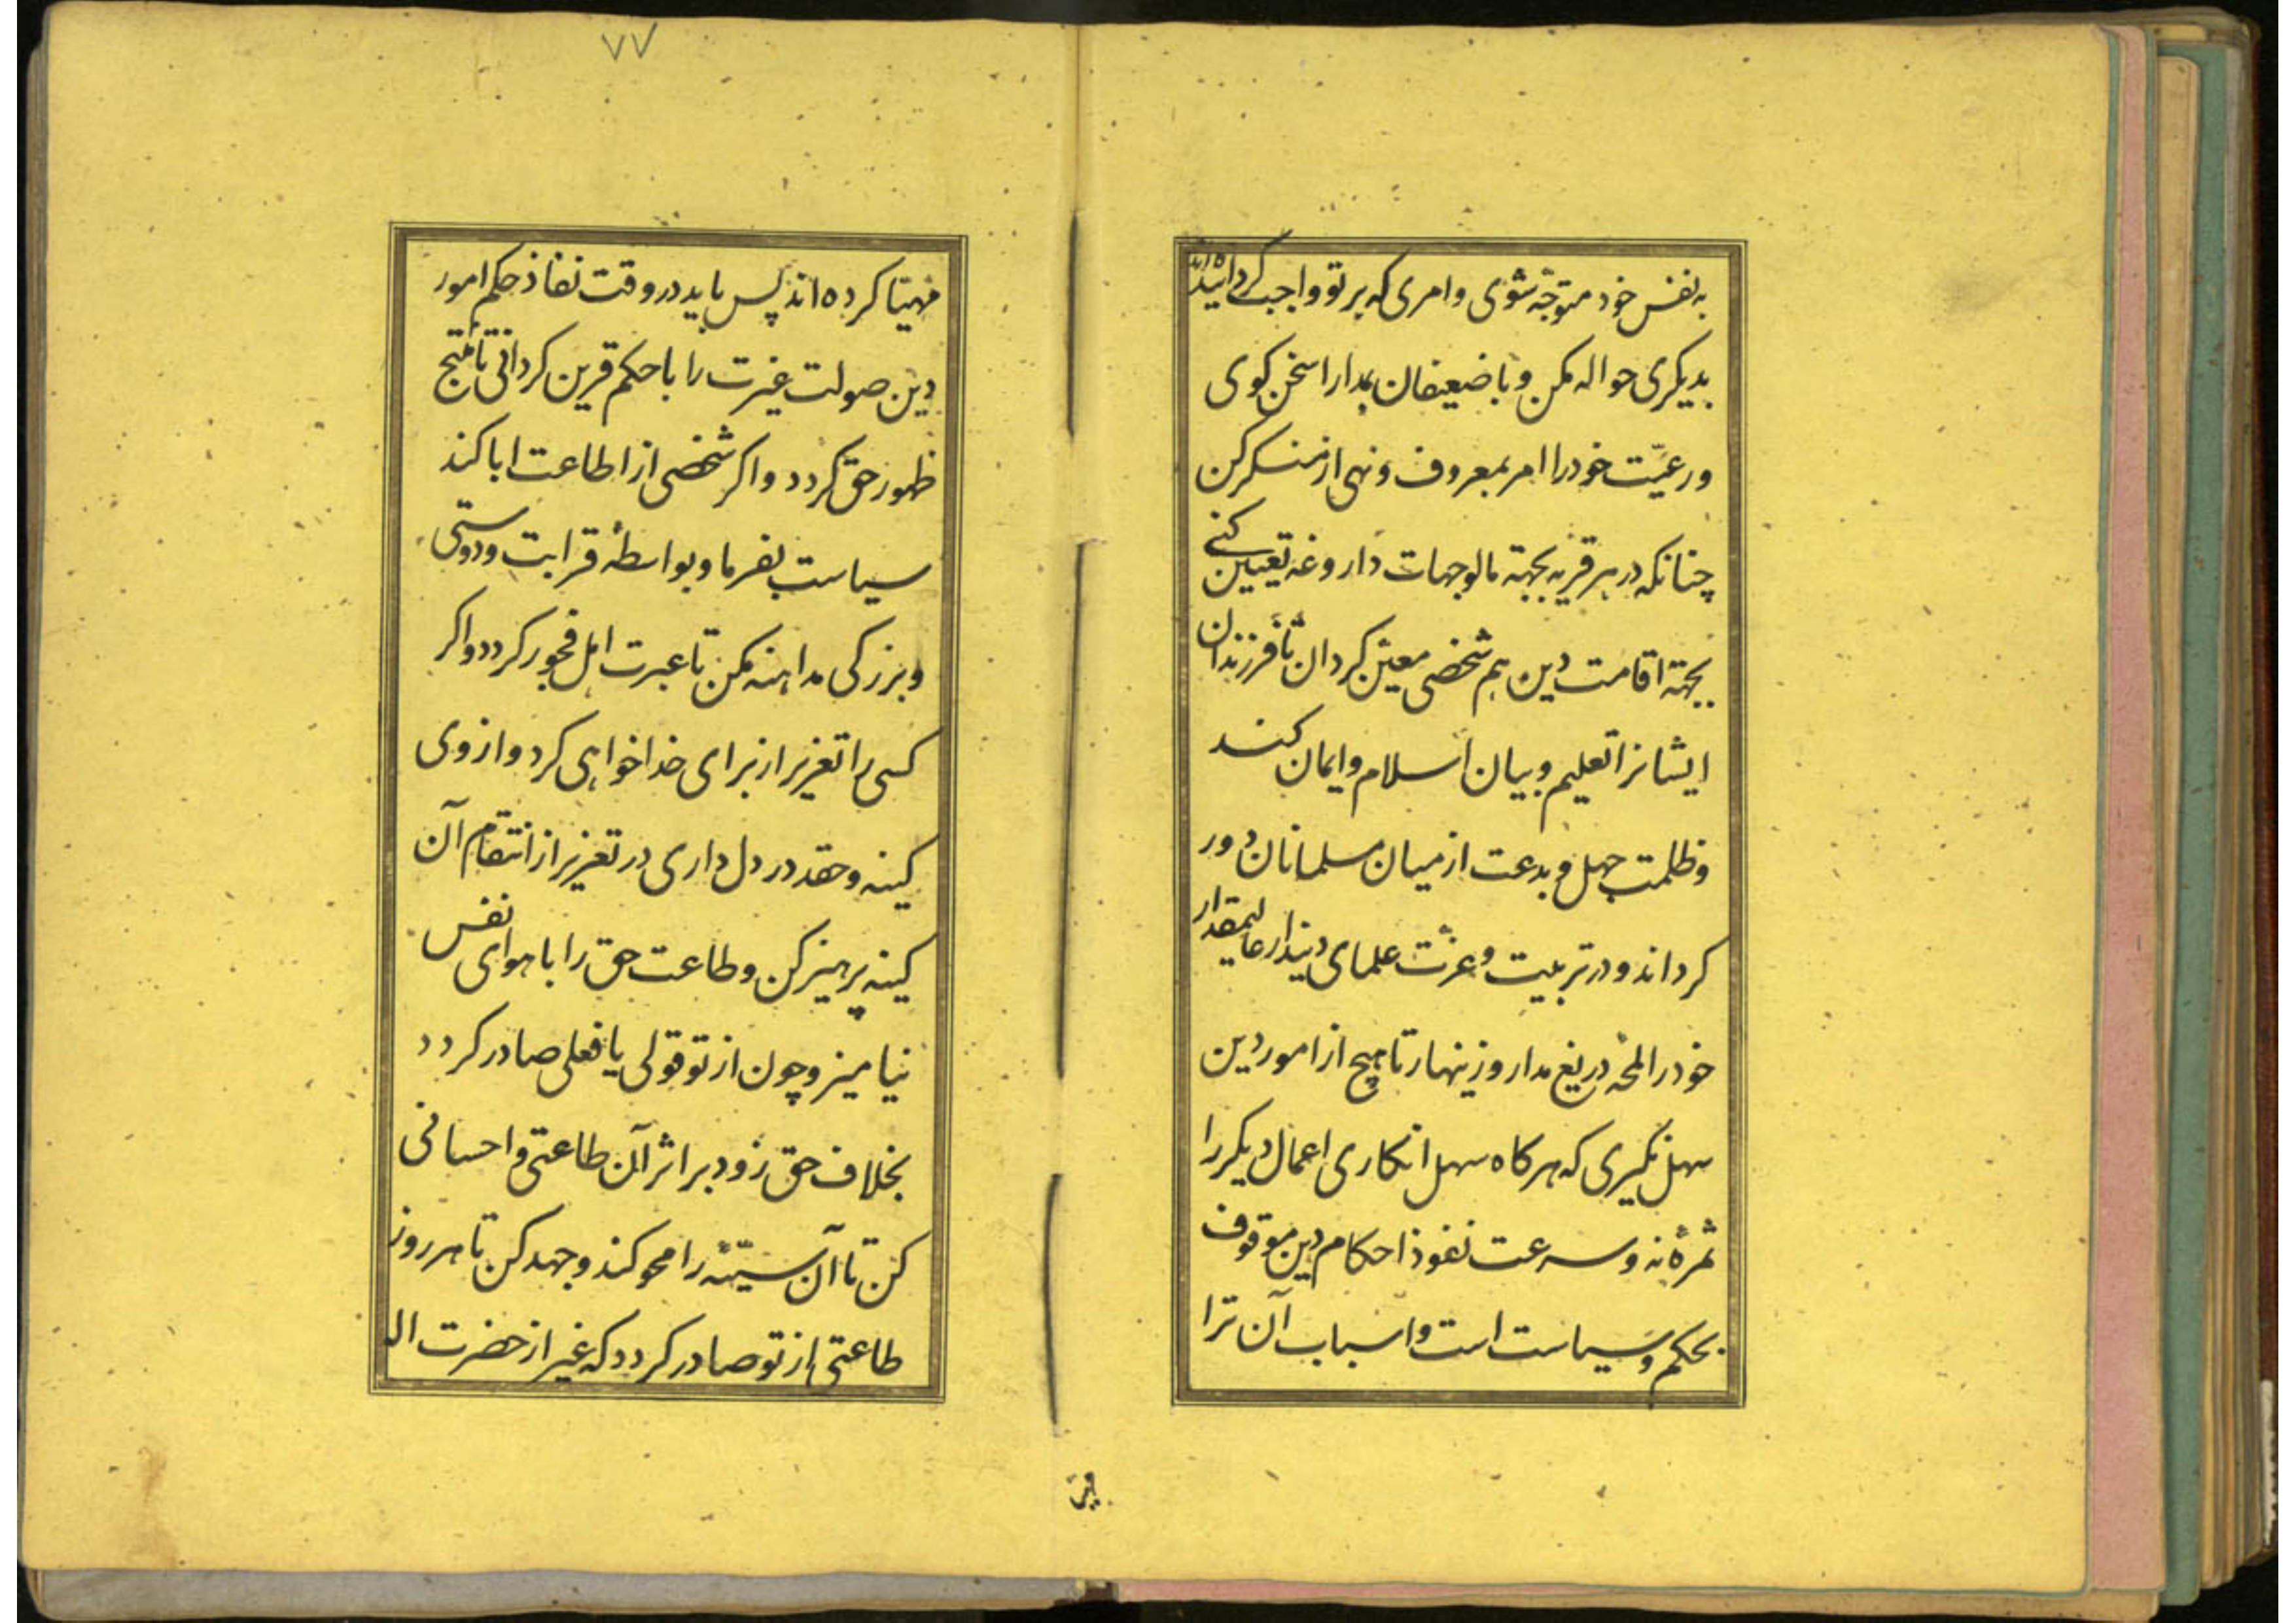 ۷۷
به نفس خود متوجّه شوی و امری که بر تو واجب کردانیده اند
بدیکری حواله مکن و با ضعیفان بمدارا سخن کوی
و رعیّت خود را امر بمعروف و نهی از منسکر کن
چنانکه در هر قریه بجهته مالوجهات داروغه تعیین کنے
بجهته اقامت دین هم شخصی معیّن کردان تا فرزندان
ایشانرا تعلیم و بیان اسلام و ایمان کند
و ظلمت جهل و بدعت از میان مسلمانان دور
کرداند و در تربیت و عزّت علمای دیندار عالیمقدار
خود را لمحهٔ دریغ مدار و زینهار تا هیچ از امور دین
سهل نکیری که هرکاه سهل انکاری اعمال دیکر را
ثمرهٔ نه و سرعت نفوذ احکام دین موقوف
بحکم و سیاست است و اسباب آن ترا
مهیّا کرده اند پس باید در وقت نفاذ حکم امور
دین صولت غیرت را با حکم قرین کردانی تا منتج
ظهور حق کردد و اکر شخصی از اطاعت ابا کند
سیاست بفرما و بواسطهٔ قرابت و دوستی
و بزرکی مداهنه مکن تا عبرت اهل فجور کردد و اکر
کسی را تعزیر از برای خدا خواهی کرد و از وی
کینه و حقد در دل داری در تعزیر از انتقام آن
کینه پرهیز کن و طاعت حق را با هوای نفس
نیامیز و چون از تو قولی یا فعلی صادر کردد
بخلاف حق زود بر اثر آن طاعتی و احسانی
کن تا آن سیّئه را محو کند و جهد کن تا هر روز
طاعتی از تو صادر کردد که غیر از حضرت اله